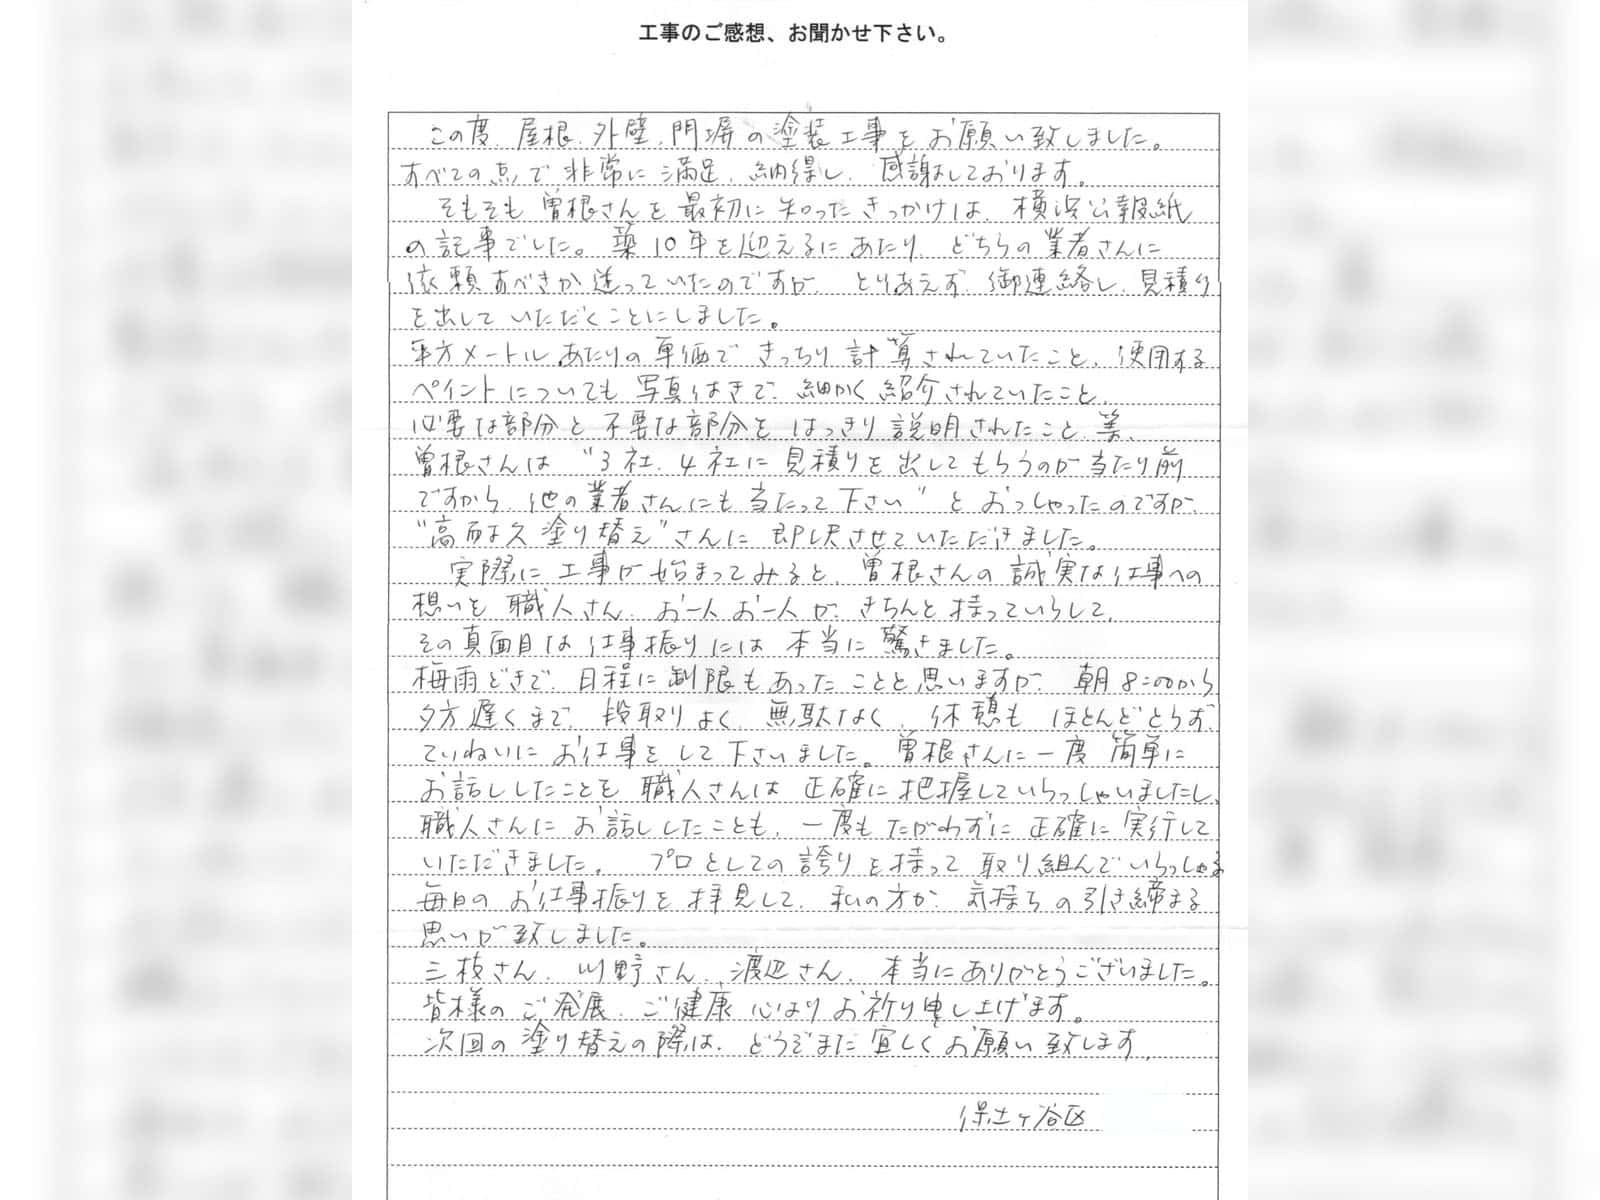 工事のご感想、お聞かせ下さい。
この度、屋根、外壁、門塀の塗装工事をお願い致しました。
すべての点で非常に満足、納得し、感謝しております。
そもそも曽根さんを最初に知ったきっかけは、横浜公報紙
の記事でした。築10年を迎えるにあたり、どちらの業者さんに
依頼すべきか迷っていたのですが、とりあえず、御連絡し、見積り
を出していただくことにしました。
平方メートルあたりの単価できっちり計算されていたこと、使用する
ペイントについても写真付きで、細かく紹介されていたこと、
必要な部分と不要な部分をはっきり説明されたこと、等、
曽根さんは“3社、4社に見積りを出してもらうのが当たり前
ですから、他の業者さんにも当たって下さい”とおっしゃったのですが、
“高耐久塗り替え”さんに即決させていただきました。
実際に工事が始まってみると、曽根さんの誠実な仕事への
想いを職人さん、お一人お一人が、きちんと持っていらして、
その真面目な仕事振りには本当に驚きました。
梅雨どきで、日程に制限もあったことと思いますが、朝8:00から
夕方遅くまで、段取りよく、無駄なく、休憩もほとんどとらず、
ていねいにお仕事をして下さいました。曽根さんに一度簡単に
お話ししたことを職人さんは正確に把握していらっしゃいましたし、
職人さんにお話ししたことも、一度もたがわずに正確に実行して
いただきました。プロとしての誇りを持って取り組んでいらっしゃる
毎日のお仕事振りを拝見して、私の方が気持ちの引き締まる
思いが致しました。
三枝さん、川野さん、渡辺さん、本当にありがとうございました。
皆様のご発展、ご健康心よりお祈り申し上げます。
次回の塗り替えの際は、どうぞまた宜しくお願い致します。
保土ヶ谷区